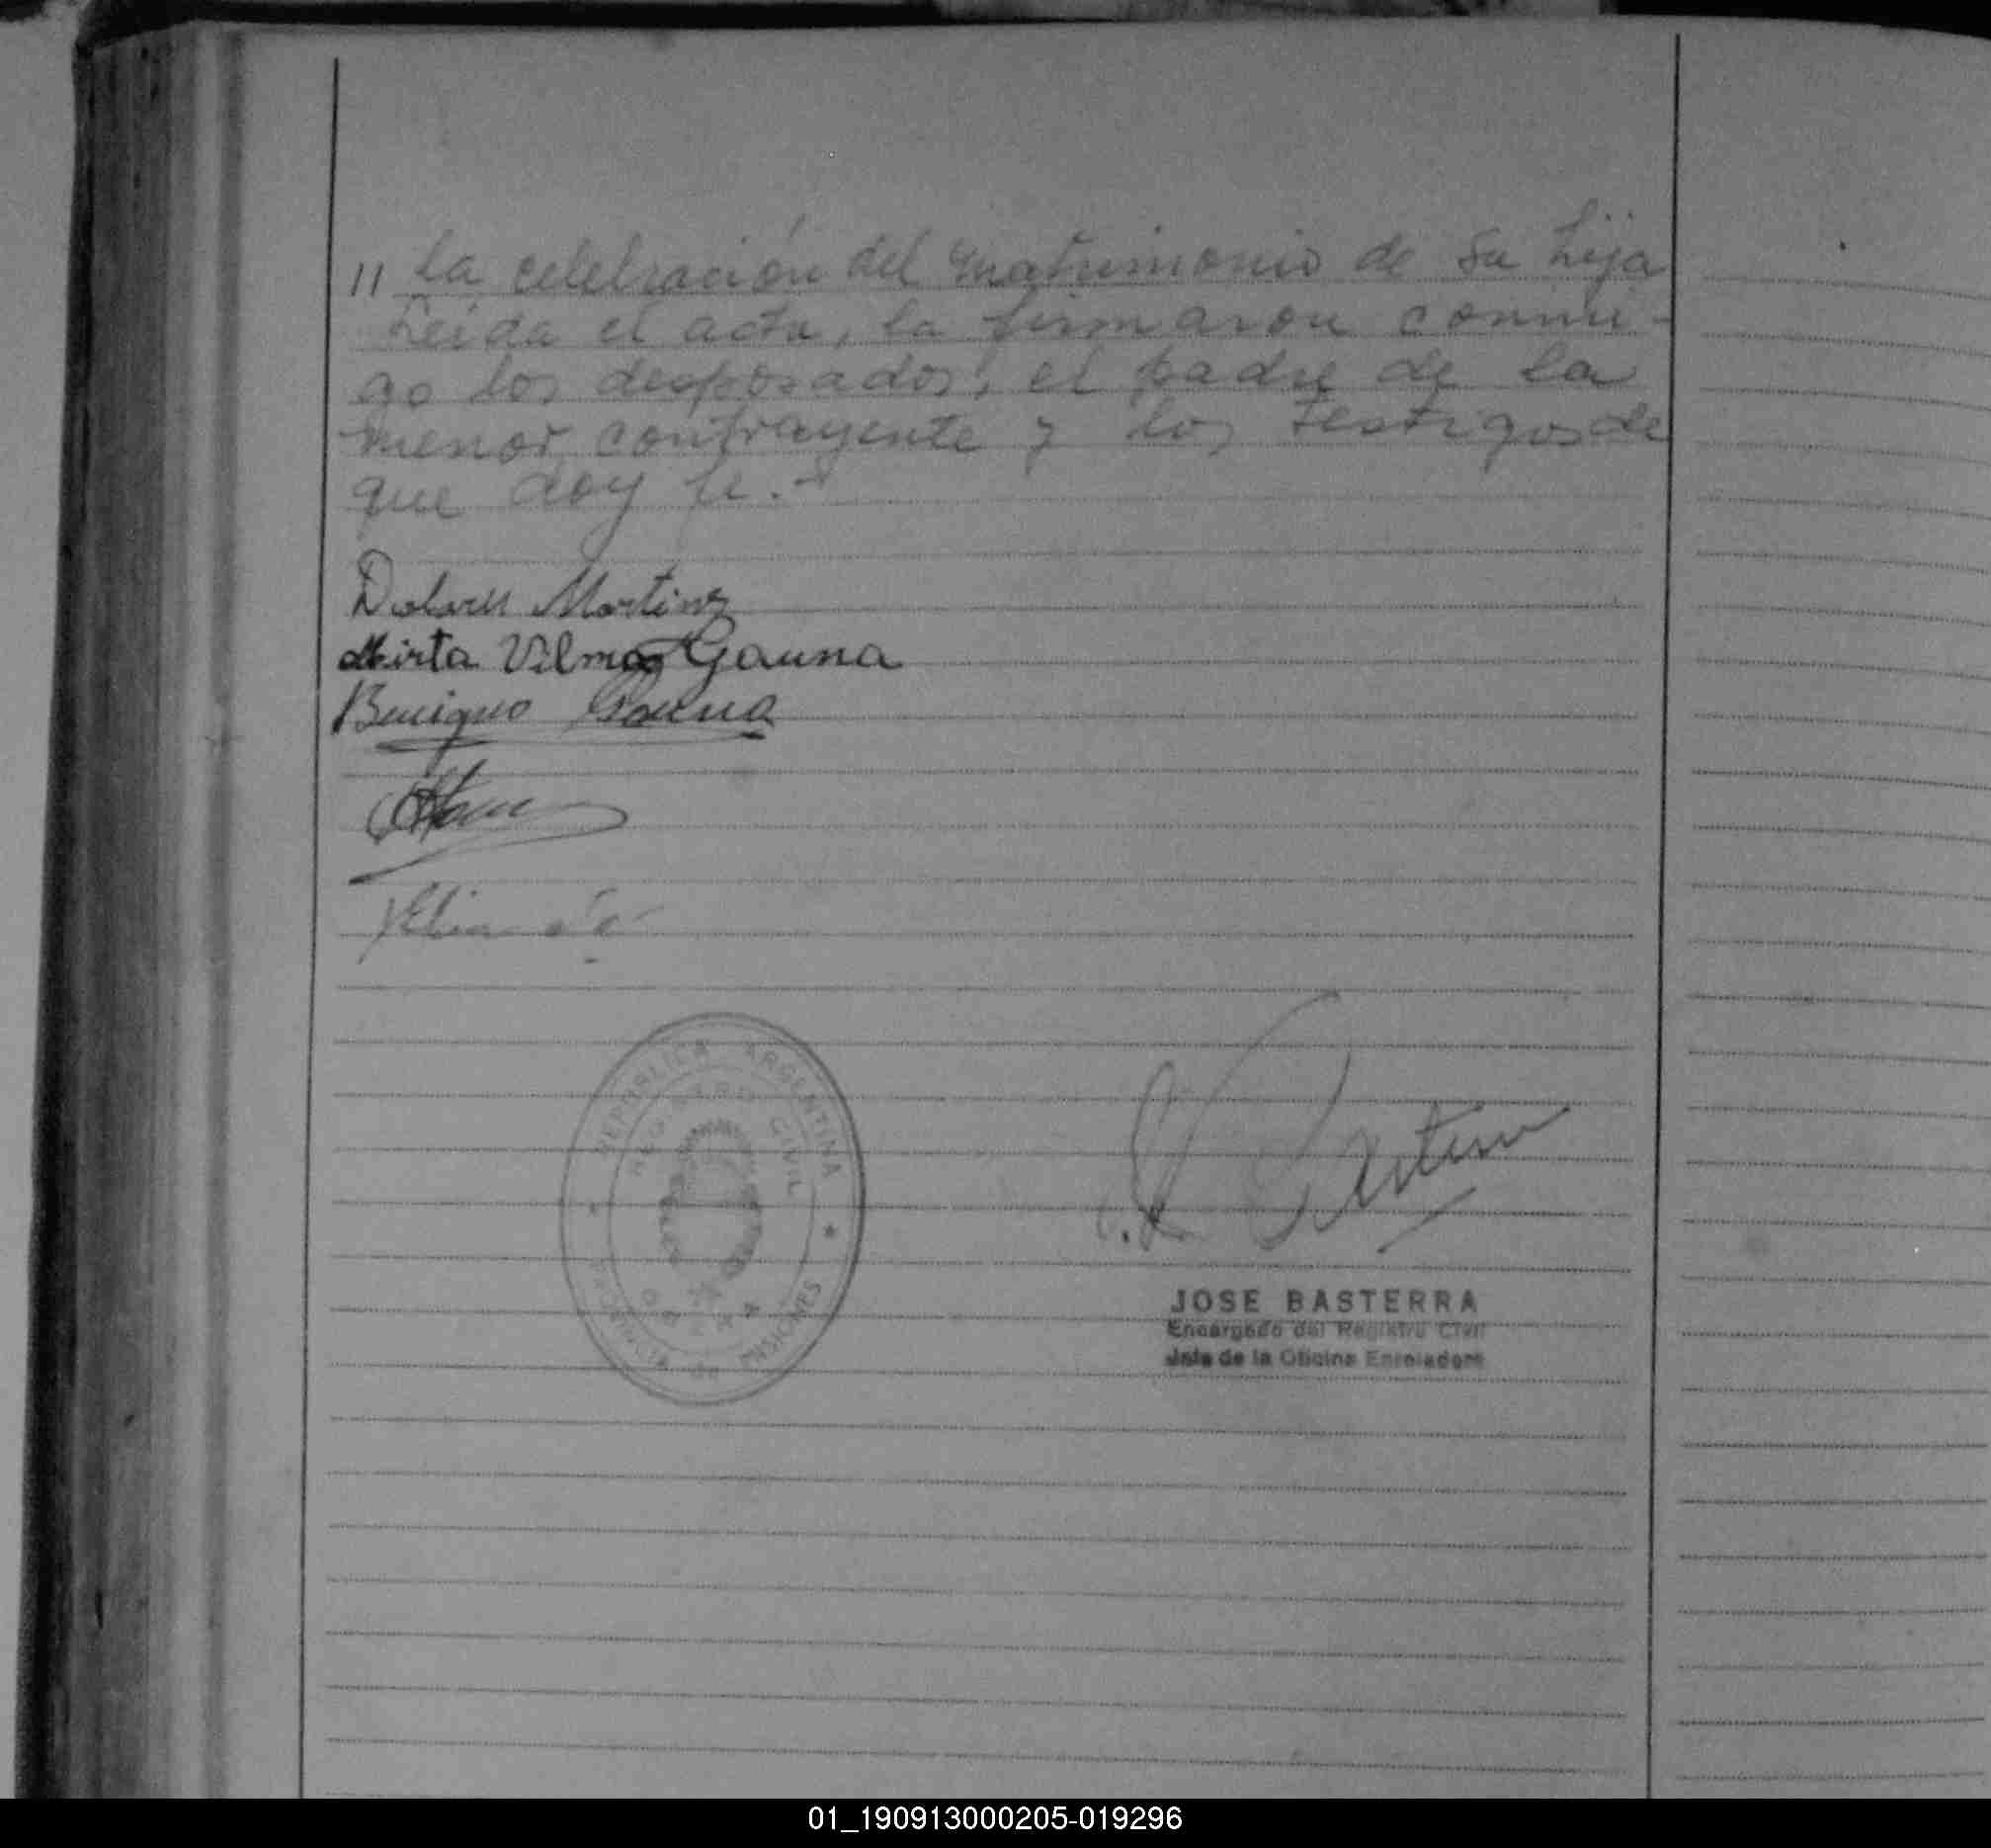 // la celebración del matrimonio de su hija
Leida el acta, la firmaron conmi-
go los desposados, el padre de la
menor contrayente y los testigos de
que doy fe.-
Dolores Martinez
Mirta Vilma Gauna
Benigno Gauna
REPUBLICA ARGENTINA
REGISTRO CIVIL
DE MISIONES
JOSE BASTERRA
Encargado del Registro Civil
Jefe de la Oficina Enroladora
01_190913000205-019296